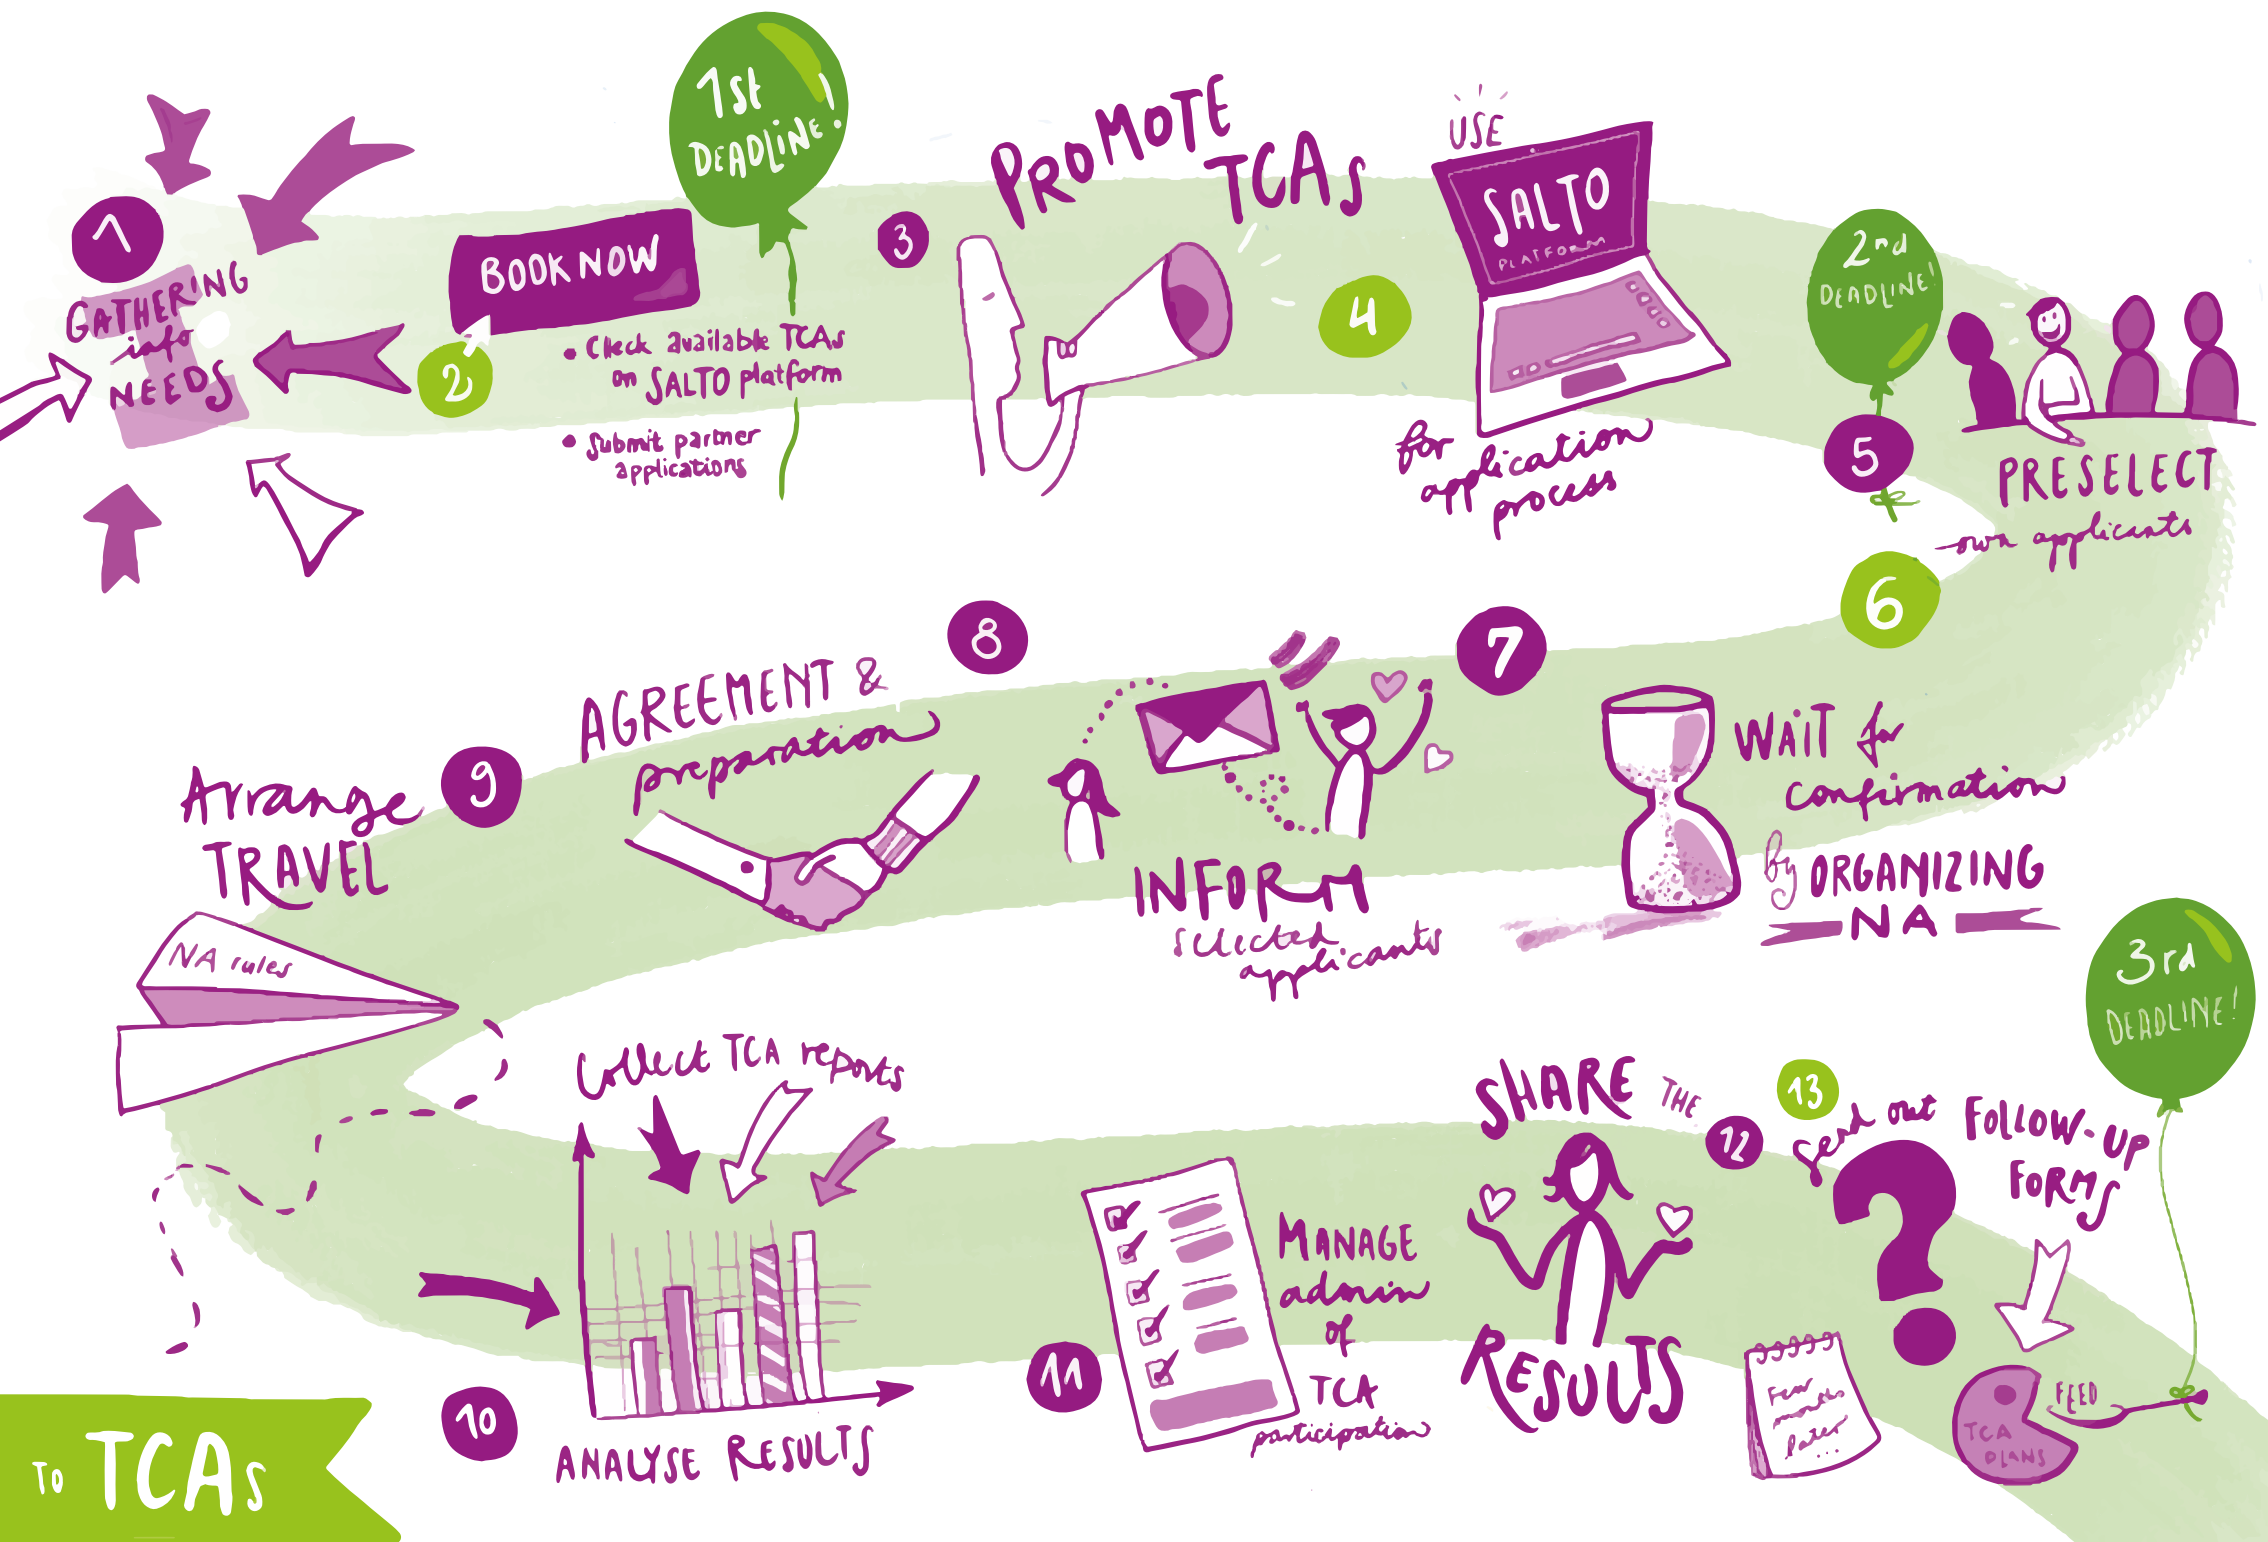 1
GATHERING
info
NEEDS
2
BOOK NOW
• Check available TCAs
on SALTO platform
• Submit partner
applications
1st
DEADLINE!
3
PROMOTE
TCAs
4
USE
SALTO
PLATFORM
for
application
process
2nd
DEADLINE!
5
PRESELECT
own applicants
6
WAIT for
confirmation
by ORGANIZING
NA
7
INFORM
selected
applicants
8
AGREEMENT &
preparation
9
Arrange
TRAVEL
NA rules
10
Collect TCA reports
ANALYSE RESULTS
11
MANAGE
admin
of
TCA
participation
12
SHARE THE
RESULTS
13
Send out FOLLOW-UP
FORMS
Few
months
later
...
3rd
DEADLINE!
FEED
TCA
PLANS
TO TCAs